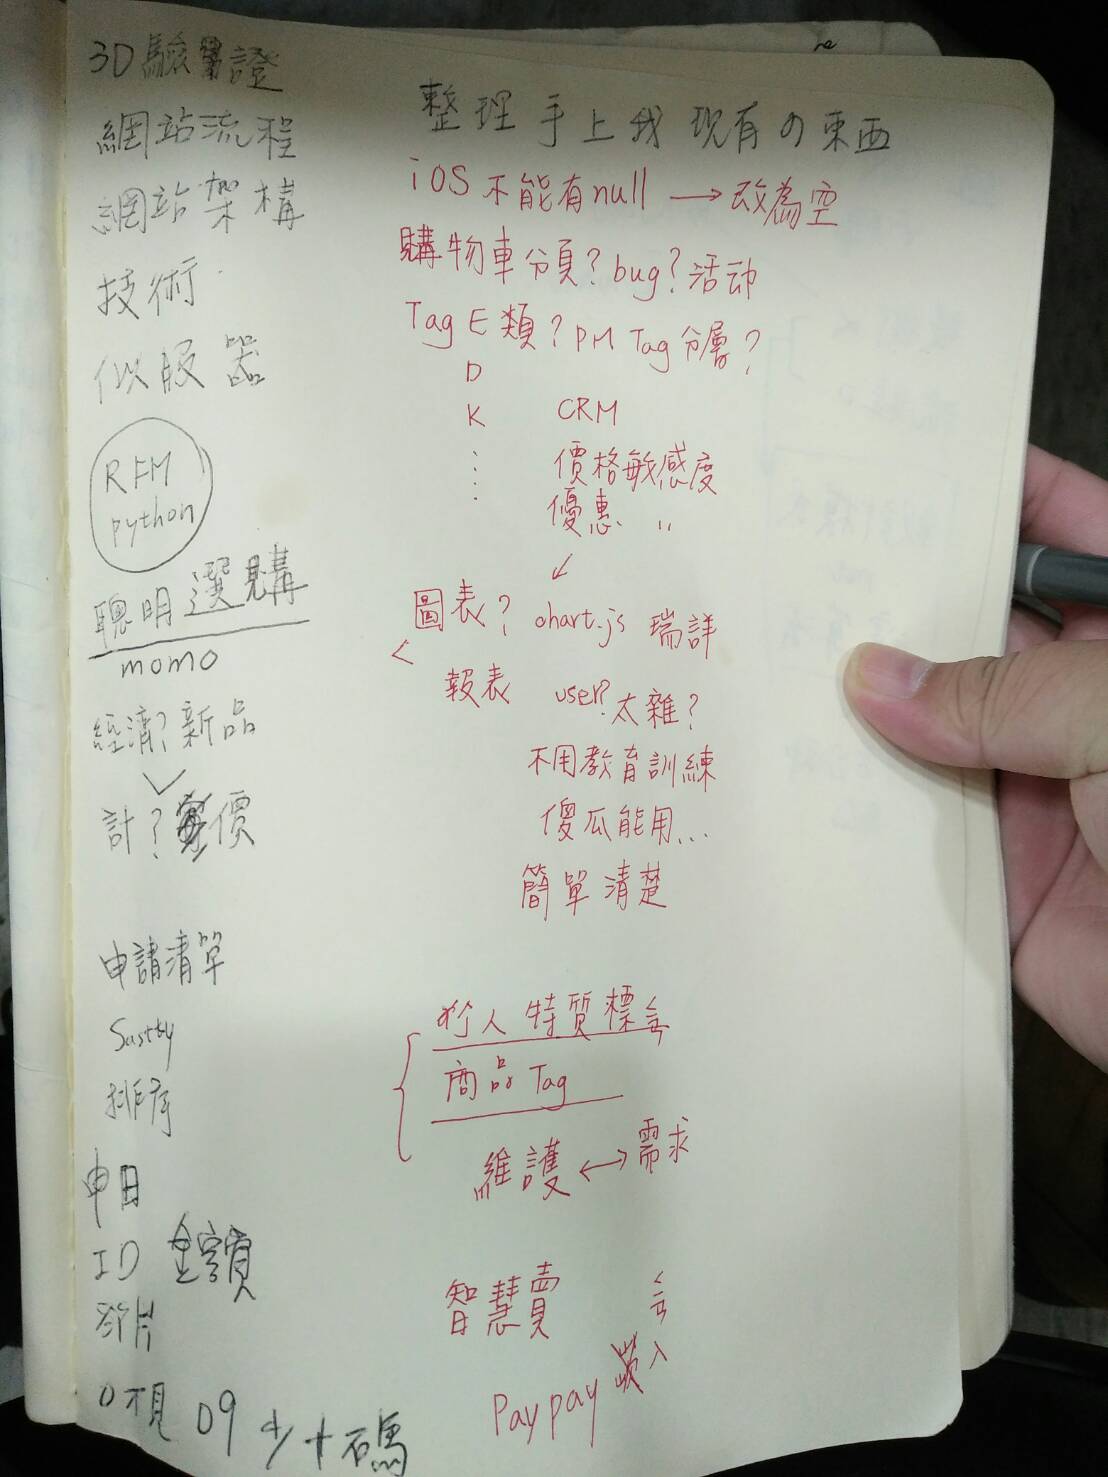 3D驗證
網站流程
網站架構
技術
伺服器
RFM
python
聰明選購
momo
經濟?新品
計?價
申請清單
排序
申日
ID 金額
卻片
0不見 09 少十碼
整理手上我現有の東西
iOS不能有null → 改為空
購物車分頁?bug?活动
Tag E類?PM Tag分層?
D
K
⋮
CRM
價格敏感度
優惠 〃
↙
圖表? chart.js 瑞詳
<
報表 user?太雜?
不用教育訓練
傻瓜能用...
簡單清楚
個人特質標
商品Tag
維護 ↔ 需求
智慧賣
Paypay 嵌入